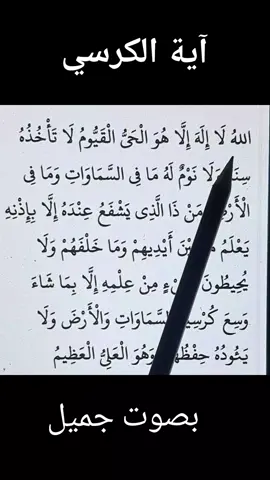 آية الكرسي
اللهُ لَا إِلَهَ إِلَّا هُوَ الْحَيُّ الْقَيُّومُ لَا تَأْخُذُهُ
وَلَا نَوْمٌ لَهُ مَا فِي السَّمَاوَاتِ وَمَا فِي
ذَا الَّذِي يَشْفَعُ عِنْدَهُ إِلَّا بِإِذْنِهِ
يَعْلَمُ أَيْدِيهِمْ وَمَا خَلْفَهُمْ وَلَا
مِنْ عِلْمِهِ إِلَّا بِمَا شَاءَ
وَسِعَ السَّمَاوَاتِ وَالْأَرْضَ وَلَا
يَئُودُهُ وَهُوَ الْعَلِيُّ الْعَظِيمُ
بصوت جميل